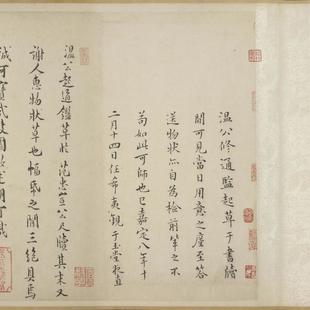 温公修通監起草于書牘
間可見當日用意之庄至答
送物狀亦自為檢前輩之不
苟如此可師也已嘉定八年十
二月十四日任希夷觀于玉堂夜直
温公起通鑑草於范忠宣公尺牘其末又
謝人惠物狀草也幅帋之間三絶具焉
誠可寶哉